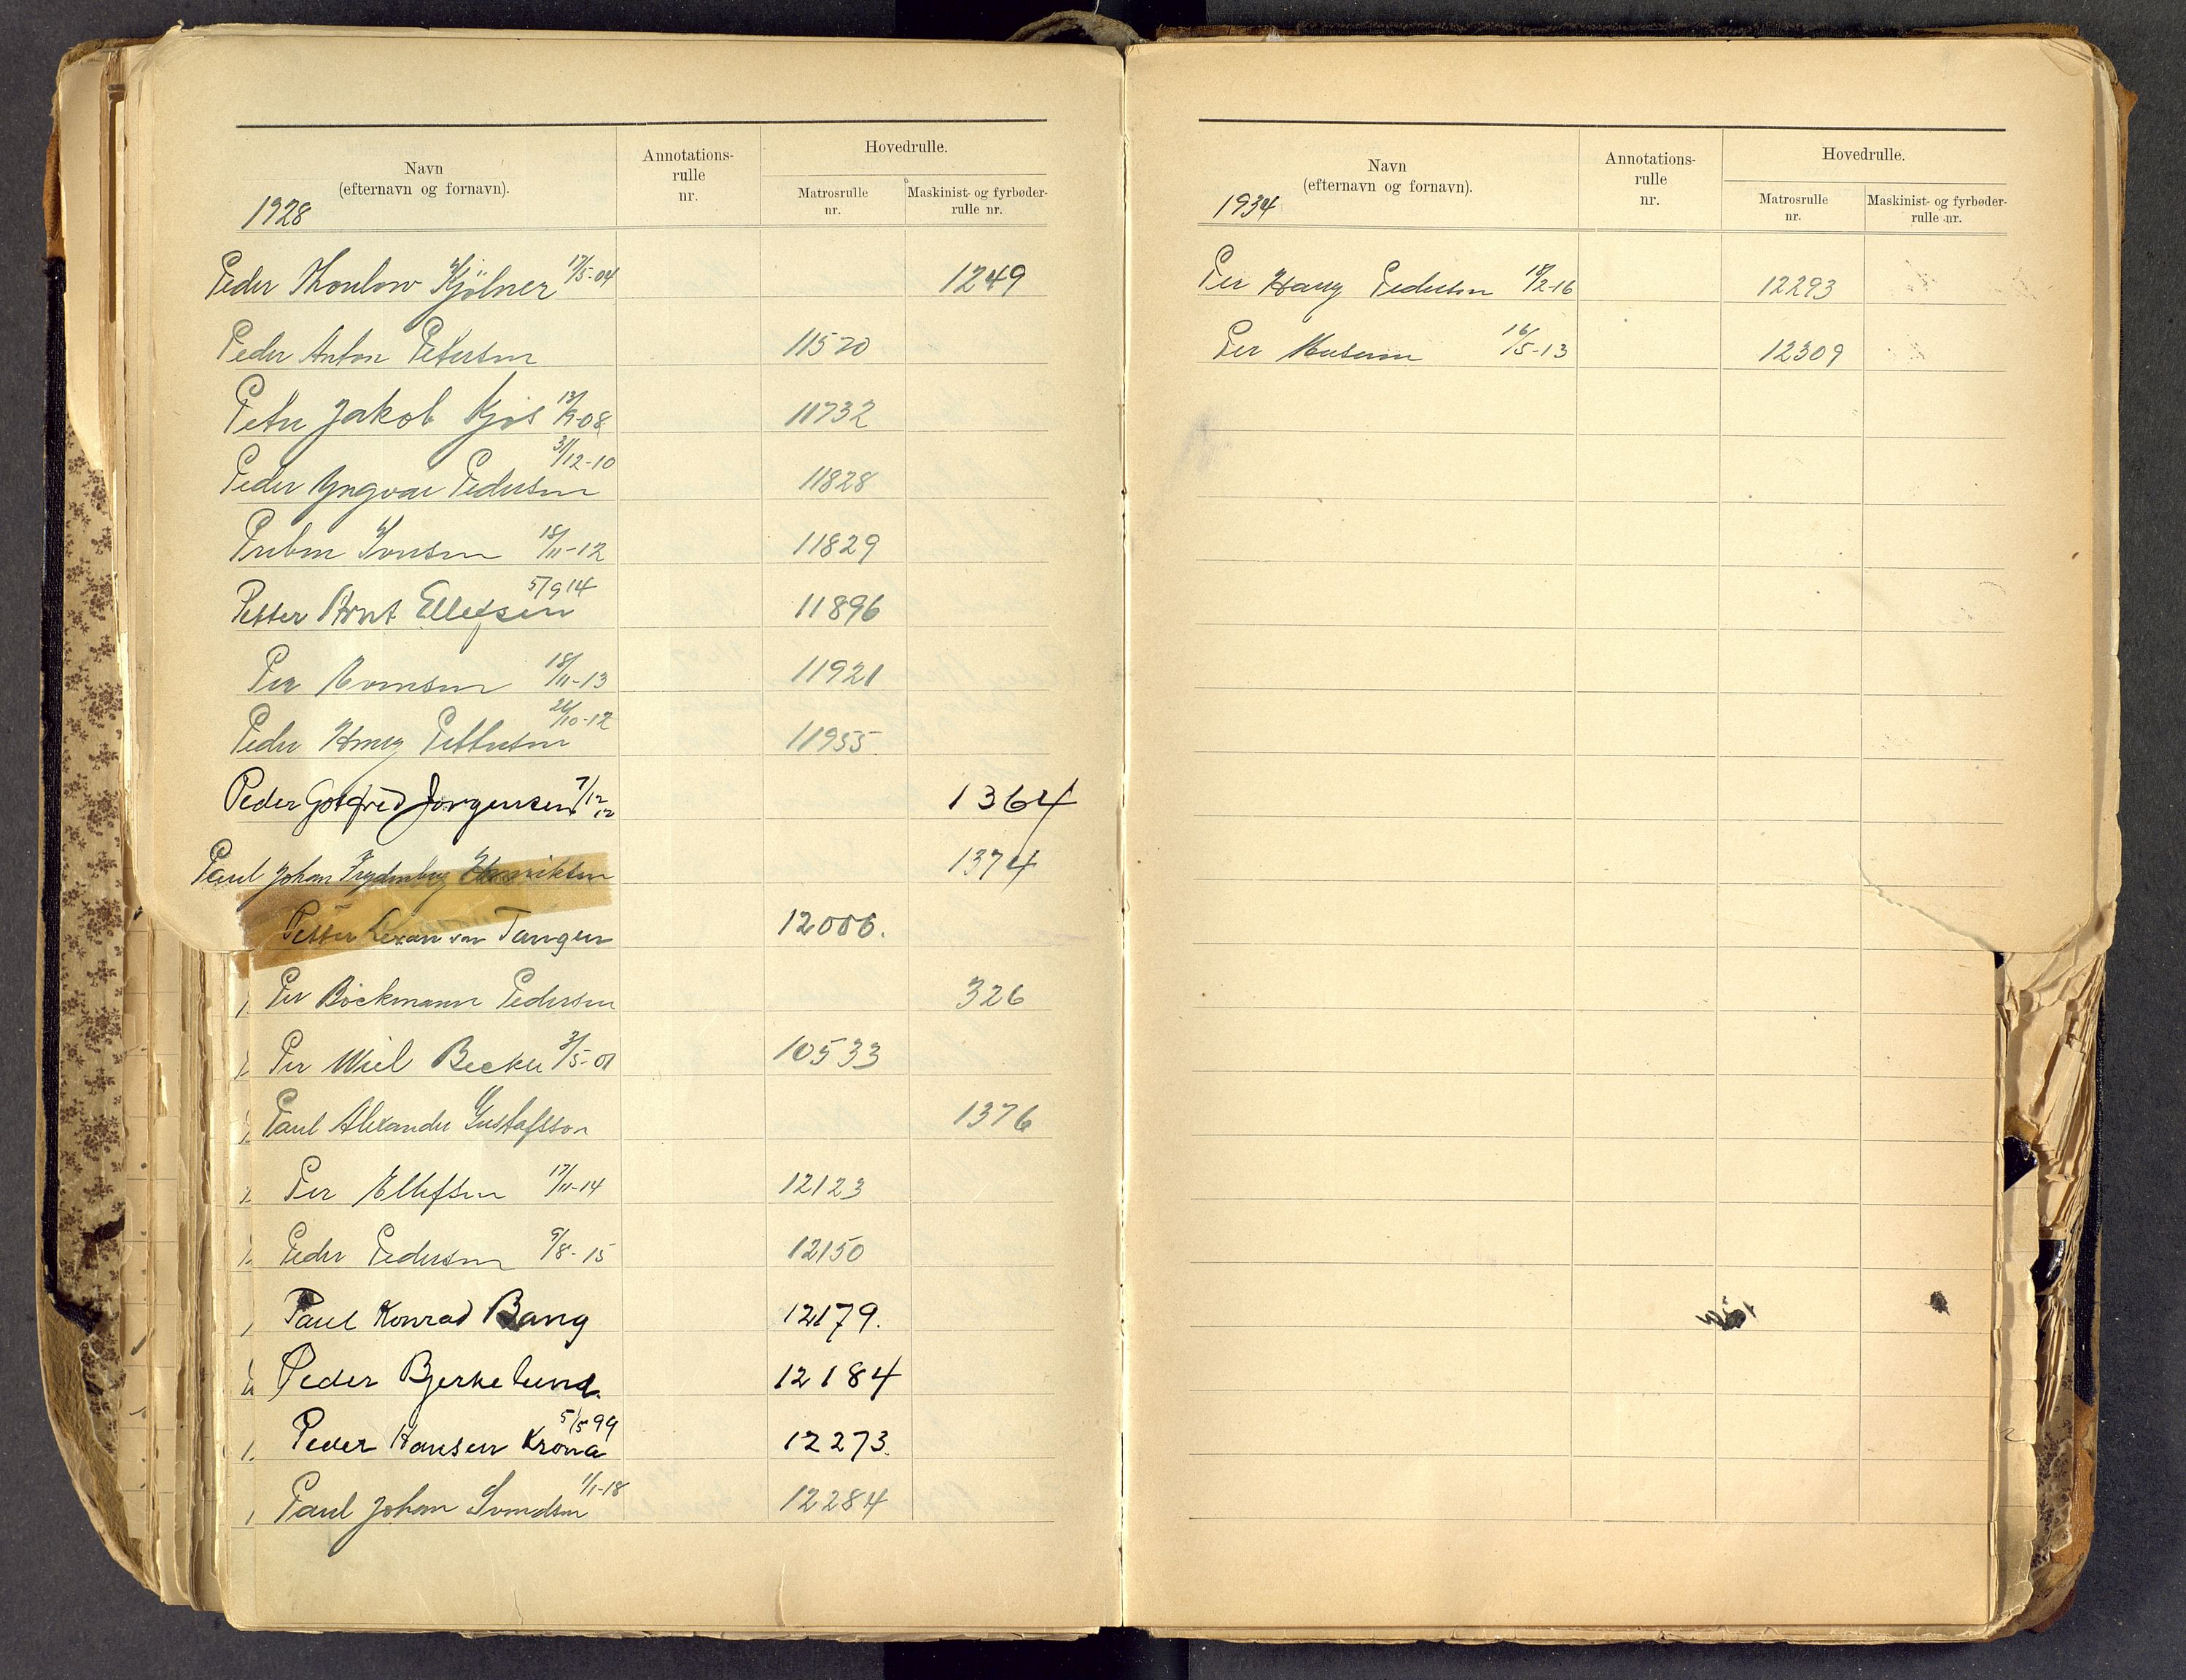 Navn
(efternavn og fornavn).
Annotations-
rulle
nr.
Hovedrulle.
Matrosrulle
nr.
Maskinist- og fyrbøder-
rulle nr.
1928
Peder Thoulow Kjölner 17/5-04 1249
Peder Anton Petersen 11520
Peter Jakob Kjøs 11732
31/12-10
Peder Yngvar Pedersen 11828
Preben Iversen 18/11-12 11829
5/9 14
Petter Bernt Ellefsen 11896
Per Evensen 18/11-13 11921
Peder Henry Pettersen 11955.
Peder Gotfred Jørgensen 7/12 12 1364
Paul Johan Frydenberg Henriksen 1374
Petter Tangen 12006.
Per Böckmann Pedersen 326
Per Wiel Becker 3/5-01 10533
Paul Alexander Gustafsson 1376
Per Ellefsen 17/11-14 12123
Peder Pedersen 9/8-15 12150
Paul Konrad Bang 12179.
Peder Bjerkelund. 12184
5/5 99
Peder Hansen Krona 12273.
1/1-18
Paul Johan Svendsen 12284
Navn
(efternavn og fornavn).
Annotations-
rulle
nr.
Hovedrulle.
Matrosrulle
nr.
Maskinist- og fyrbøder-
rulle nr.
1934
Per Haug Pedersen 18/2-16 12293
Per 16/5-13 12309